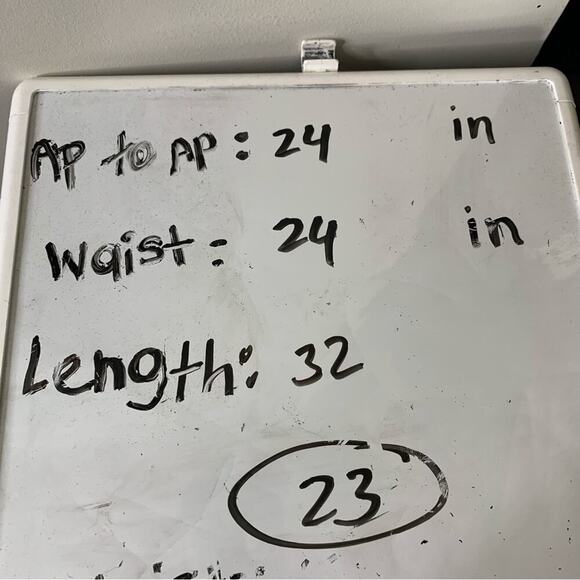 AP to AP: 24 in
Waist: 24 in
Length: 32
23